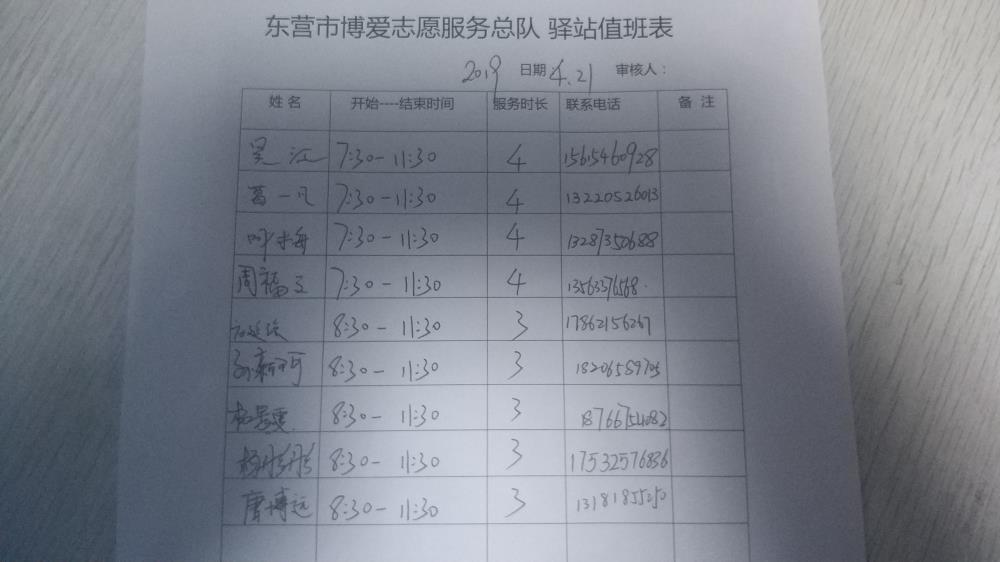 东营市博爱志愿服务总队 驿站值班表
2019 日期 4.21 审核人：
姓名 开始----结束时间 服务时长 联系电话 备注
吴江 7:30-11:30 4 15615460928
葛一凡 7:30-11:30 4 13220526013
叶海 7:30-11:30 4 13287350688
周福立 7:30-11:30 4 13563376568
8:30-11:30 3 17862156267
8:30-11:30 3 18206589705
杨景雯 8:30-11:30 3 18766754082
杨彤彤 8:30-11:30 3 17532576836
唐博远 8:30-11:30 3 13181855250